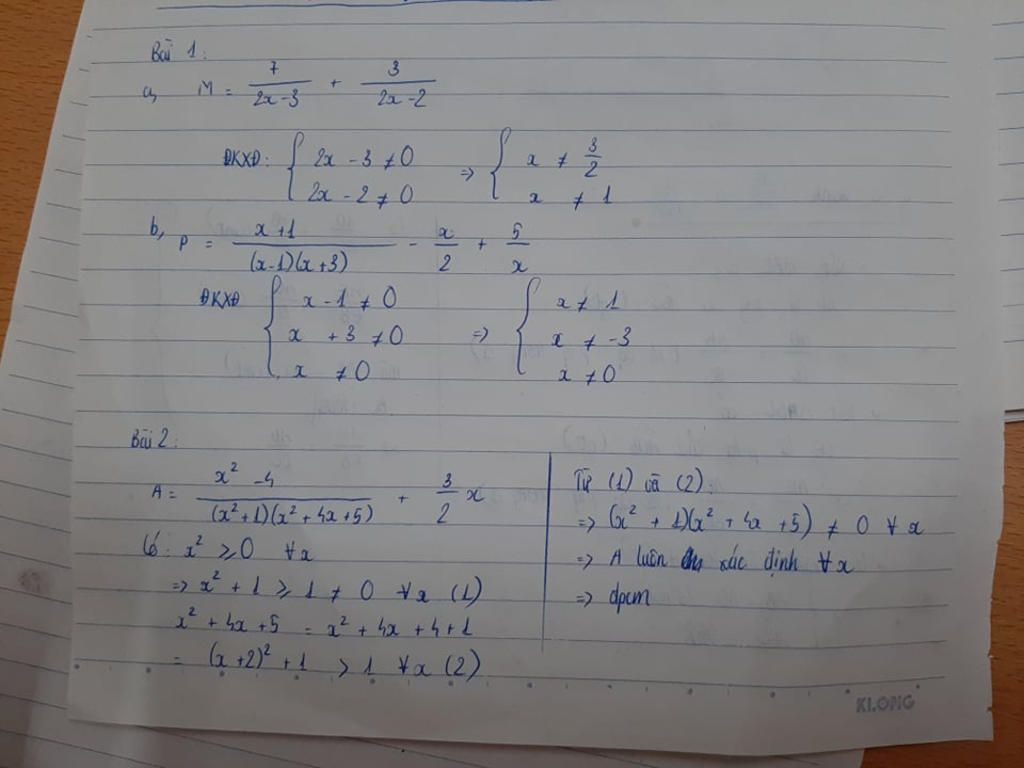 Bài 1:
a, M = 7/(2x-3) + 3/(2x-2)
ĐKXĐ: { 2x - 3 ≠ 0 => { x ≠ 3/2
2x - 2 ≠ 0 x ≠ 1
b, P = (x+1)/((x-1)(x+3)) - x/2 + 5/x
ĐKXĐ { x - 1 ≠ 0 => { x ≠ 1
x + 3 ≠ 0 x ≠ -3
x ≠ 0 x ≠ 0
Bài 2:
A = (x² - 4)/((x²+1)(x²+4x+5)) + 3/2 x
Có: x² ≥ 0 ∀x
=> x² + 1 ≥ 1 ≠ 0 ∀x (1)
x² + 4x + 5 = x² + 4x + 4 + 1
= (x+2)² + 1 > 1 ∀x (2)
Từ (1) và (2):
=> (x² + 1)(x² + 4x + 5) ≠ 0 ∀x
=> A luôn xác định ∀x
=> đpcm
KLONG